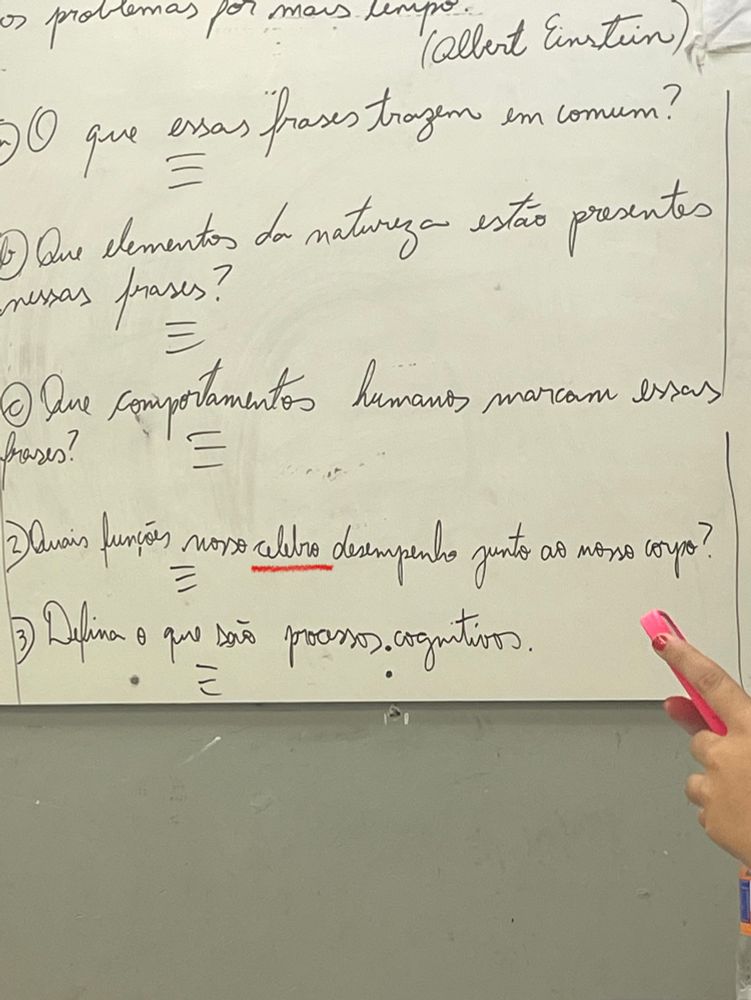 os problemas por mais tempo.
(Albert Einstein)
a) O que essas "frases trazem em comum?
b) Que elementos da natureza estão presentes
nessas frases?
c) Que comportamentos humanos marcam essas
frases?
2) Quais funções nosso celebro desempenha junto ao nosso corpo?
3) Defina o que são processos cognitivos.